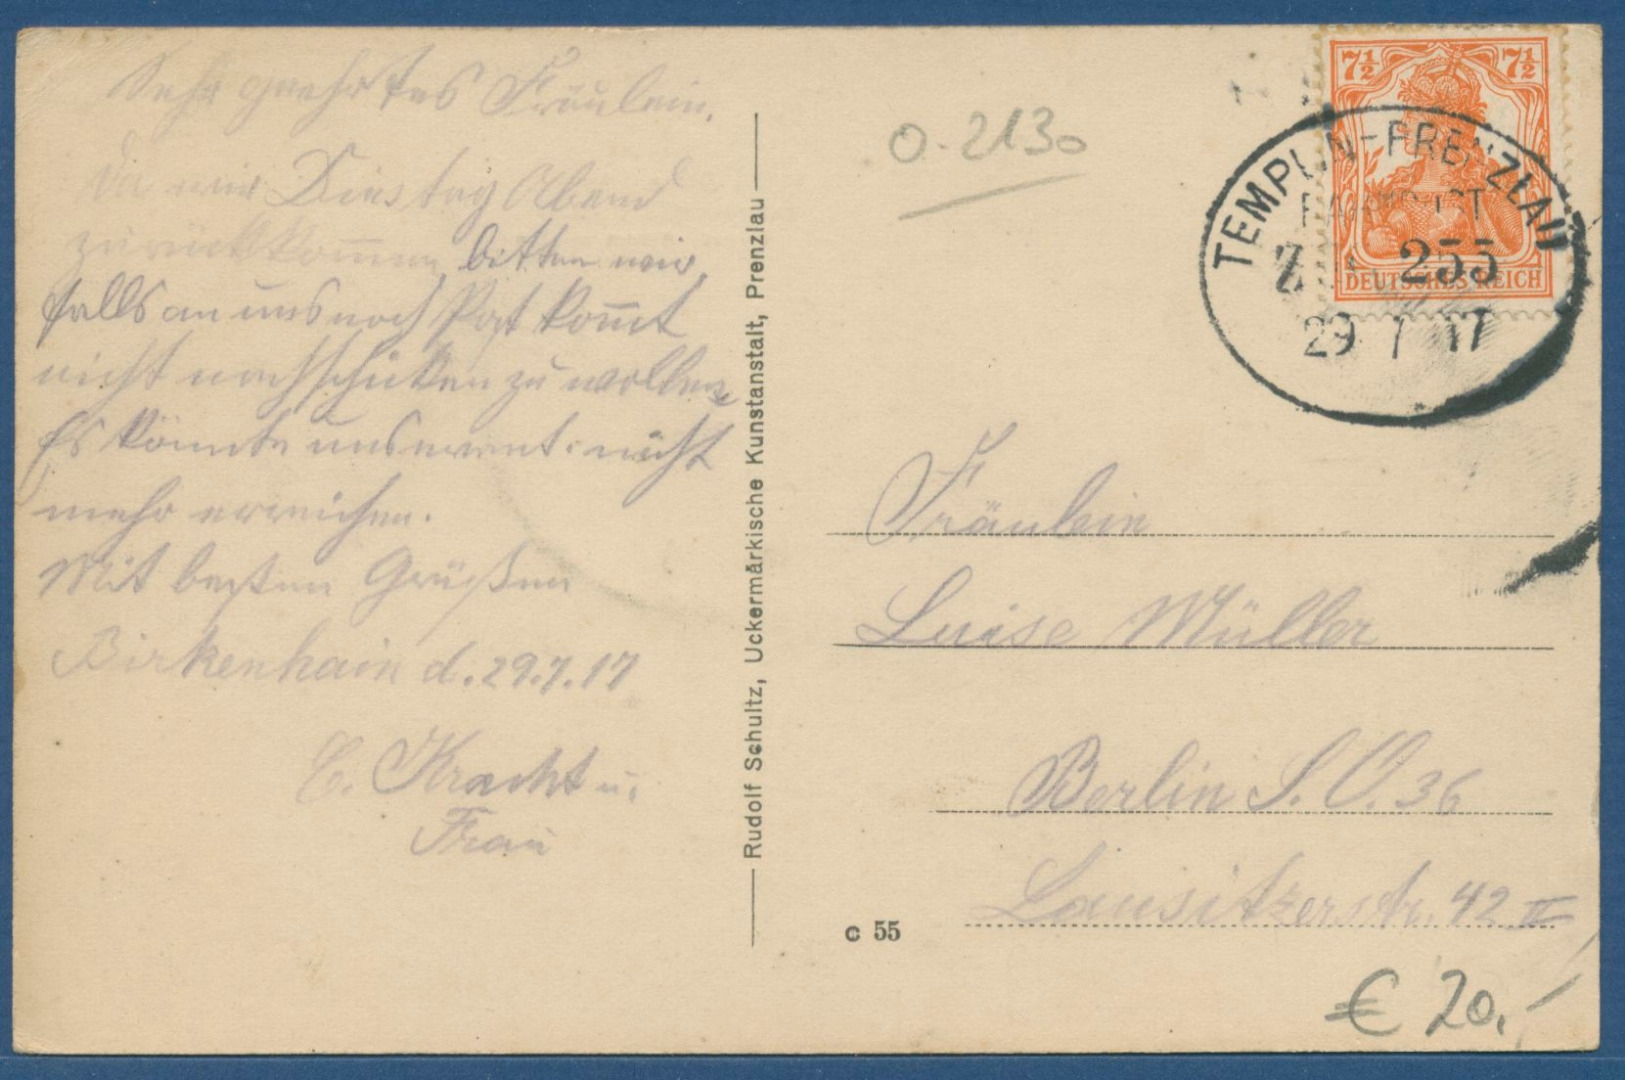 Sehr geehrtes Fräulein.
Da wir Dienstag Abend
zurückkom̅en, bitten wir,
falls an uns noch Post kom̅t
nicht nachschicken zu wollen.
Es könnte uns event. nicht
mehr erreichen.
Mit besten Grüßen
Birkenhain d. 29.7.17
C. Kracht u.
Frau
Rudolf Schultz, Uckermärkische Kunstanstalt, Prenzlau
0-2130
7½ 7½
DEUTSCHES REICH
TEMPLIN-PRENZLAU
255
29 7 17
Fräulein
Luise Müller
Berlin S.O. 36
Lausitzerstr. 42 II
c 55
€ 20,-